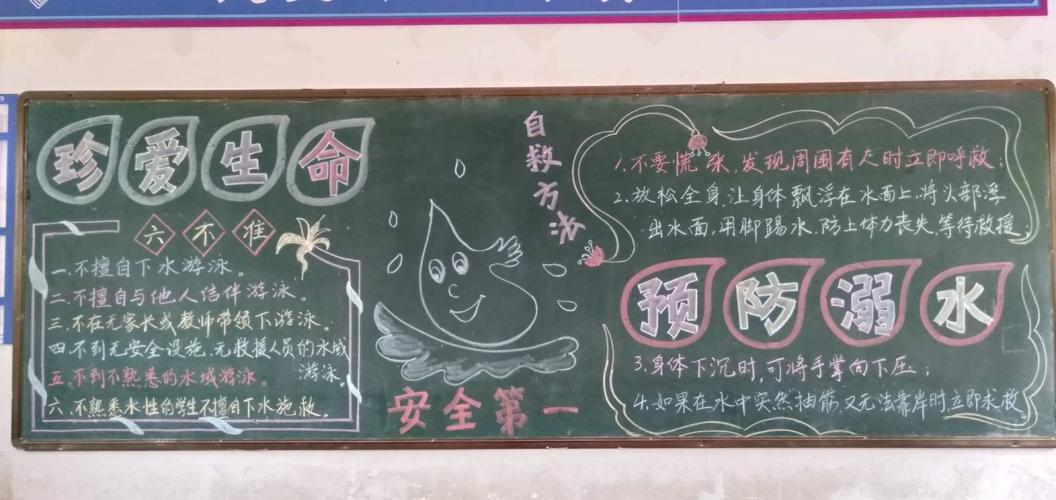 珍爱生命
六不准
一.不擅自下水游泳。
二.不擅自与他人结伴游泳。
三.不在无家长或教师带领下游泳。
四.不到无安全设施、无救援人员的水域
游泳。
五.不到不熟悉的水域游泳。
六.不熟悉水性的学生不擅自下水施救。
安全第一
自救方法
1.不要慌乱,发现周围有人时立即呼救;
2.放松全身,让身体飘浮在水面上,将头部浮
出水面,用脚踢水,防止体力丧失,等待救援;
预防溺水
3.身体下沉时,可将手掌向下压;
4.如果在水中突然抽筋,又无法靠岸时,立即求救。